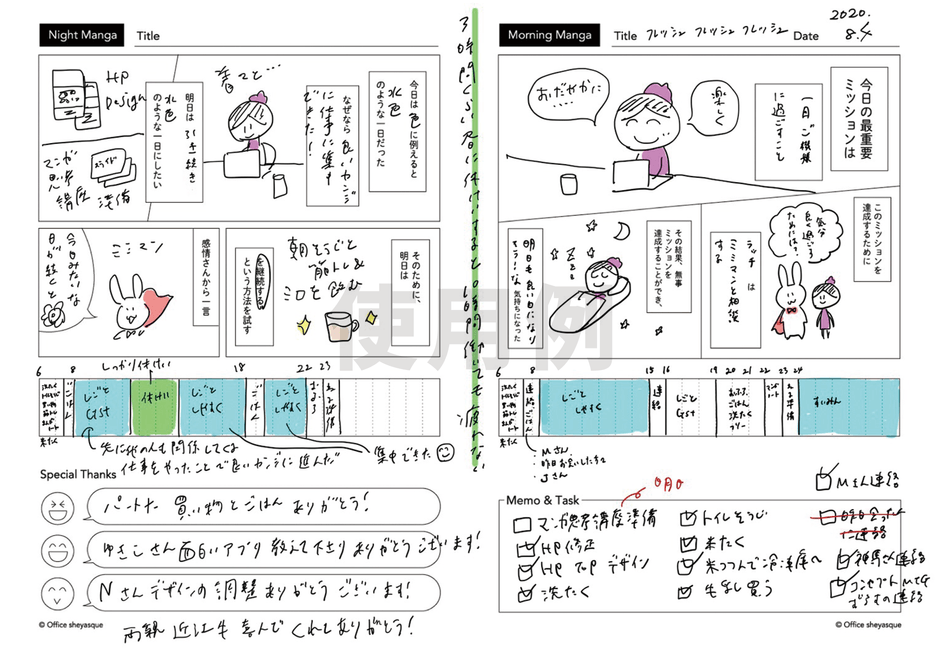 Night Manga
Title
HP
Design
マンガ
思考
講座
スライド
準備
明日は
引き続き
水色
のような一日にしたい
着々と…
なぜなら良いカンジ
に仕事に集中
できた!
今日は色に例えると
水色
のような一日だった
今日みたいな
日が続くと
ミミマン
感情さんから一言
朝そうじと
筋トレ&
ミロを飲む
を継続する
という方法を試す
そのために、
明日は
使用例
しっかり休けい
6
8
18
22
23
ごはん
しごと
GST
休けい
しごと
しゃすく
ごはん
しごと
しゃすく
おふろ
ねる準備
集中できた
仕事をやったことで良いカンジに進んだ
Special Thanks
パートナー 買い物とごはん ありがとう!
ゆきこさん面白いアプリ 教えて下さり ありがとうございます!
Nさんデザインの調整ありがとうございます!
両親 近江牛 喜んでくれしありがとう!
© Office sheyasque
Morning Manga
Title
フレッシュ フレッシュ フレッシュ
Date
2020.
8.4
おだやかに
楽しく
一日ご機嫌
に過ごすこと
今日の最重要
ミッションは
明日も良い日になり
そう!な
気持ちになった
その結果、無事
達成することができ、
Zzz
ランチ は
ミミマンと相談
する
気分
良く過ごす
ためには?
このミッションを
達成するために
6
8
15
16
19
20
21
22
23
24
連絡ごはん
しごと
しゃすく
連絡
しごと
GST
おふろ
ごはん
洗たく
フリー
ねる準備
すいみん
米たく
・Mさん
・Jさん
Mさん連絡
Memo & Task
マンガ思考講座準備
HP修正
HP TOP デザイン
洗たく
トイレそうじ
米たく
米つつんで冷凍庫へ
牛乳し買う
© Office sheyasque